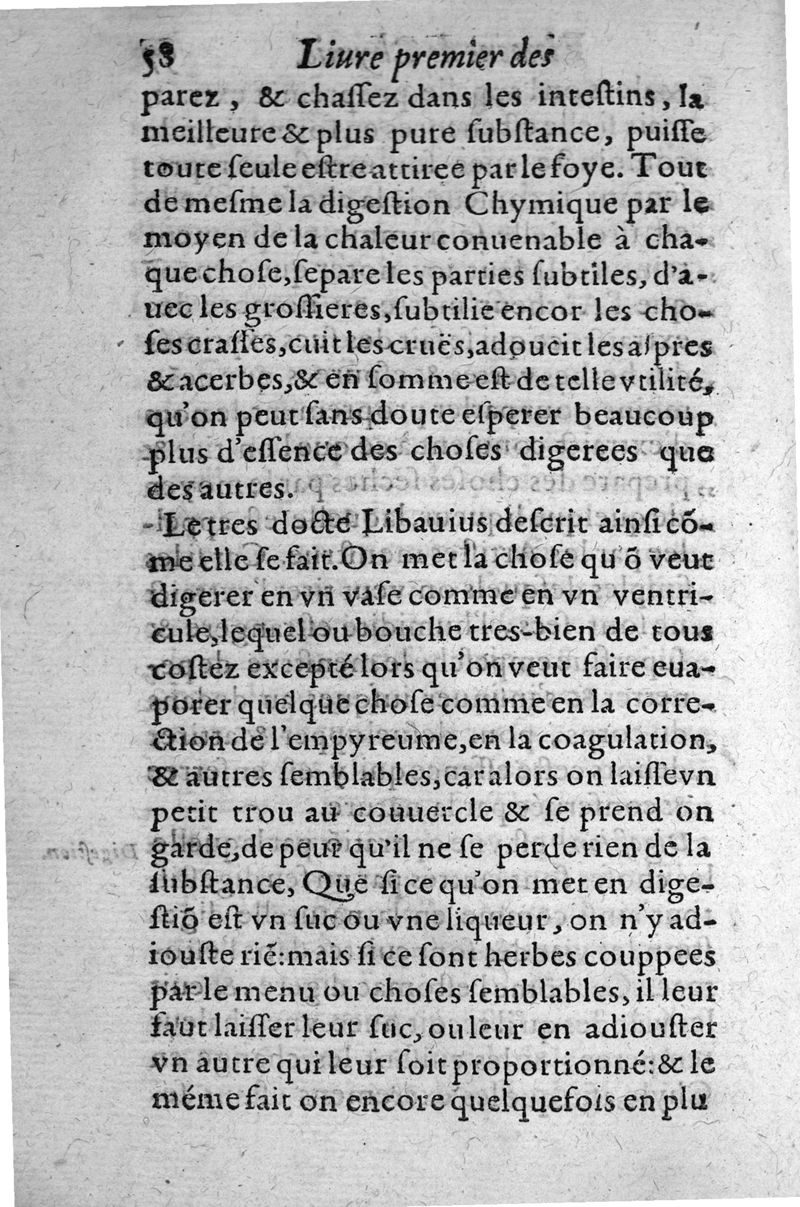 58 Liure premier des
parez, & chaſſez dans les inteſtins, la
meilleure & plus pure ſubſtance, puiſſe
toute ſeule eſtre attiree par le foye. Tout
de meſme la digeſtion Chymique par le
moyen de la chaleur conuenable à cha-
que choſe, ſepare les parties ſubtiles, d'a-
uec les groſſieres, ſubtilie encor les cho-
ſes craſſes, cuit les cruës, adoucit les aſpres
& acerbes, & en ſomme eſt de telle vtilité,
qu'on peut ſans doute eſperer beaucoup
plus d'eſſence des choſes digerees que
des autres.
Le tres docte Libauius deſcrit ainſi cõ-
me elle ſe fait. On met la choſe qu'õ veut
digerer en vn vaſe comme en vn ventri-
cule, lequel ou bouche tres-bien de tous
coſtez excepté lors qu'on veut faire eua-
porer quelque choſe comme en la corre-
ction de l'empyreume, en la coagulation,
& autres ſemblables, car alors on laiſſe vn
petit trou au couuercle & ſe prend on
garde, de peur qu'il ne ſe perde rien de la
ſubſtance, Que ſi ce qu'on met en dige-
ſtiõ eſt vn ſuc ou vne liqueur, on n'y ad-
iouſte riẽ: mais ſi ce ſont herbes couppees
par le menu ou choſes ſemblables, il leur
faut laiſſer leur ſuc, ou leur en adiouſter
vn autre qui leur ſoit proportionné: & le
méme fait on encore quelquefois en plu